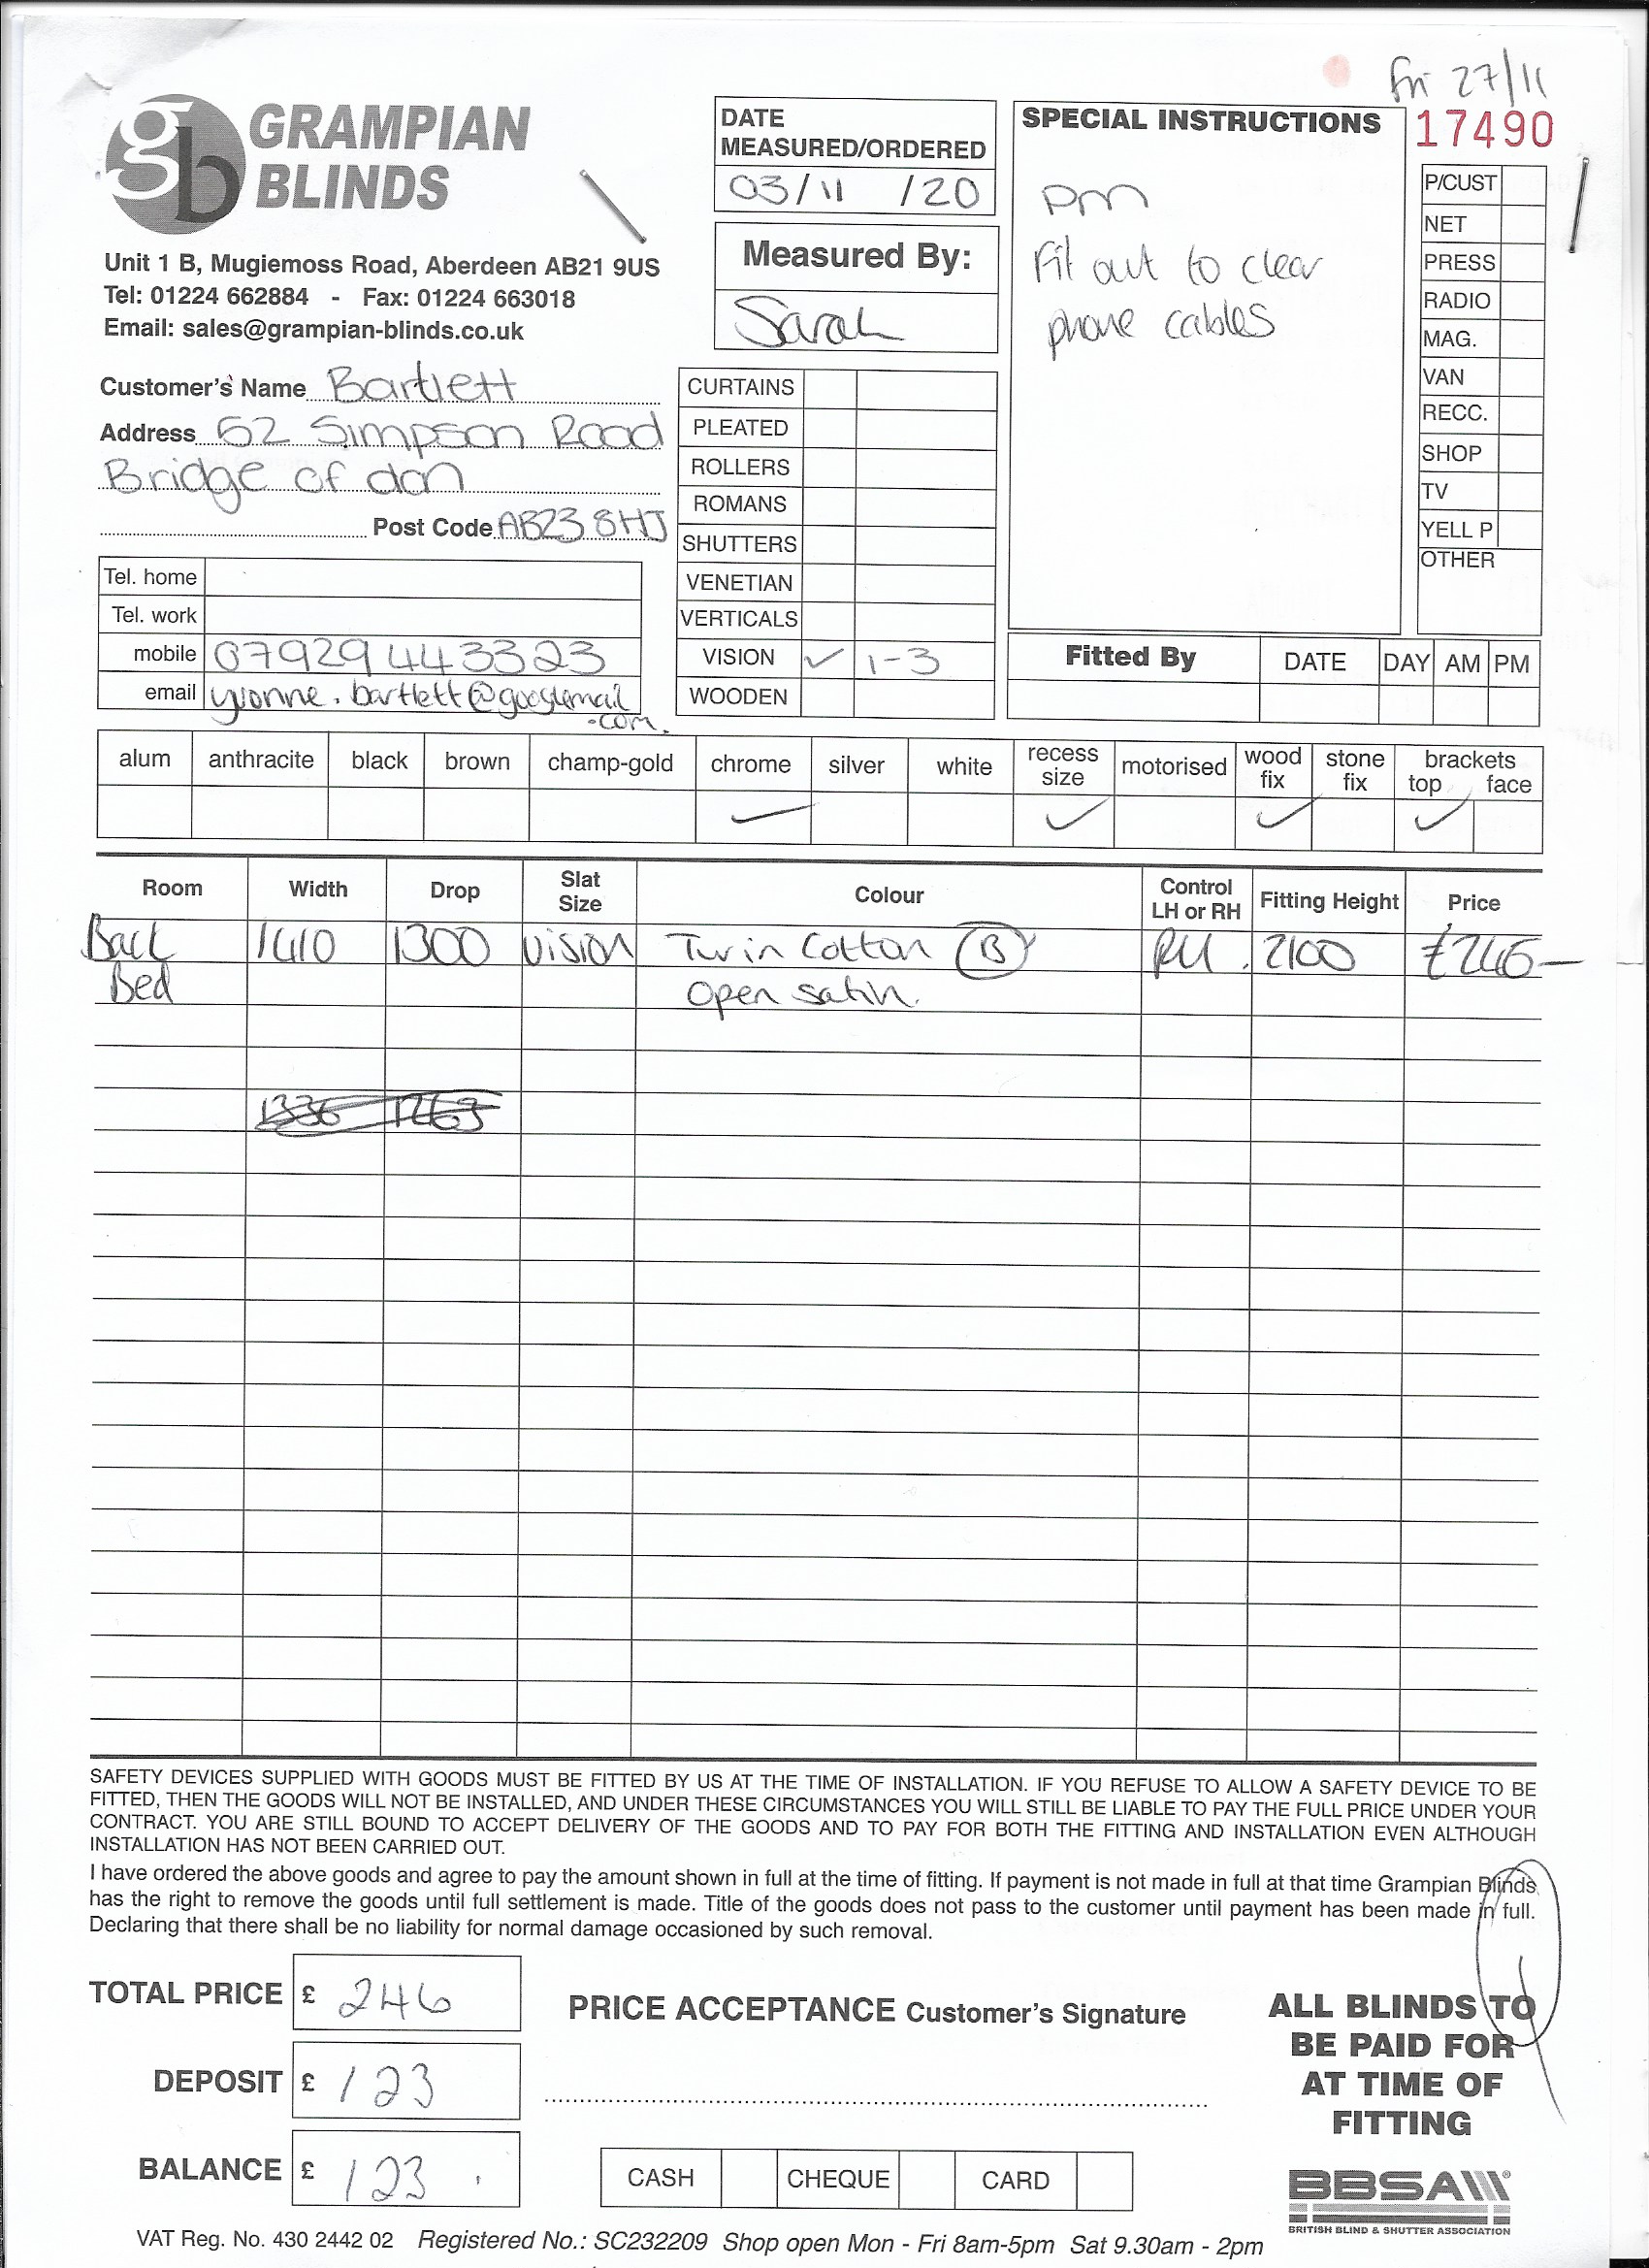 Fri 27/11
17490
gb GRAMPIAN
BLINDS
Unit 1 B, Mugiemoss Road, Aberdeen AB21 9US
Tel: 01224 662884 - Fax: 01224 663018
Email: sales@grampian-blinds.co.uk
Customer's Name Bartlett
Address 62 Simpson Road
Bridge of don
Post Code AB23 8HJ
Tel. home
Tel. work
mobile 07929 443323
email yvonne.bartlett@googlemail
.com.
DATE
MEASURED/ORDERED
03/11/20
Measured By:
Sarah
CURTAINS
PLEATED
ROLLERS
ROMANS
SHUTTERS
VENETIAN
VERTICALS
VISION ✓ 1-3
WOODEN
SPECIAL INSTRUCTIONS
pm
Fit out to clear
phone cables
P/CUST
NET
PRESS
RADIO
MAG.
VAN
RECC.
SHOP
TV
YELL P
OTHER
Fitted By DATE DAY AM PM
alum anthracite black brown champ-gold chrome silver white recess size motorised wood fix stone fix brackets top face
✓ ✓ ✓ ✓
Room Width Drop Slat Size Colour Control LH or RH Fitting Height Price
Back 1410 1300 Vision Twin Cotton (B) RH. 2100 £246—
Bed Open satin.
1336 1263
SAFETY DEVICES SUPPLIED WITH GOODS MUST BE FITTED BY US AT THE TIME OF INSTALLATION. IF YOU REFUSE TO ALLOW A SAFETY DEVICE TO BE
FITTED, THEN THE GOODS WILL NOT BE INSTALLED, AND UNDER THESE CIRCUMSTANCES YOU WILL STILL BE LIABLE TO PAY THE FULL PRICE UNDER YOUR
CONTRACT. YOU ARE STILL BOUND TO ACCEPT DELIVERY OF THE GOODS AND TO PAY FOR BOTH THE FITTING AND INSTALLATION EVEN ALTHOUGH
INSTALLATION HAS NOT BEEN CARRIED OUT.
I have ordered the above goods and agree to pay the amount shown in full at the time of fitting. If payment is not made in full at that time Grampian Blinds
has the right to remove the goods until full settlement is made. Title of the goods does not pass to the customer until payment has been made in full.
Declaring that there shall be no liability for normal damage occasioned by such removal.
TOTAL PRICE £ 246
DEPOSIT £ 123
BALANCE £ 123
PRICE ACCEPTANCE Customer's Signature
CASH CHEQUE CARD
ALL BLINDS TO
BE PAID FOR
AT TIME OF
FITTING
BBSA
BRITISH BLIND & SHUTTER ASSOCIATION
VAT Reg. No. 430 2442 02 Registered No.: SC232209 Shop open Mon - Fri 8am-5pm Sat 9.30am - 2pm